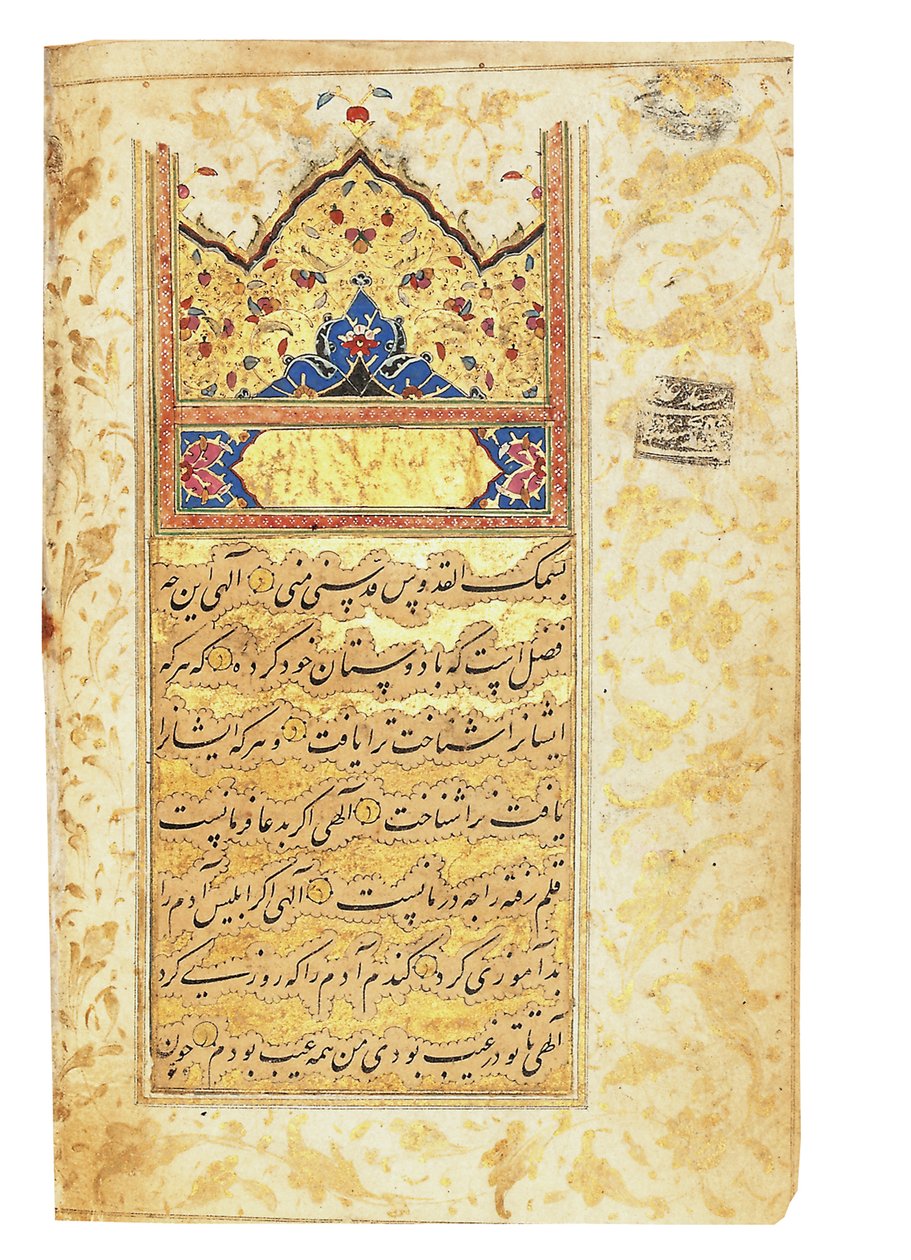 بسمک القدوس قدسنی منی الهی این چه
فضل است که با دوستان خود کرده که هرکه
ایشانرا شناخت ترا یافت و هرکه ایشانرا
یافت ترا شناخت الهی اکر بدعا فرمانست
قلم رفته را چه درمانست الهی اکر ابلیس آدم را
بدآموزی کرد کندم آدم را که روزیی کرد
الهی تا تو در غیب بودی من همه عیب بودم چون